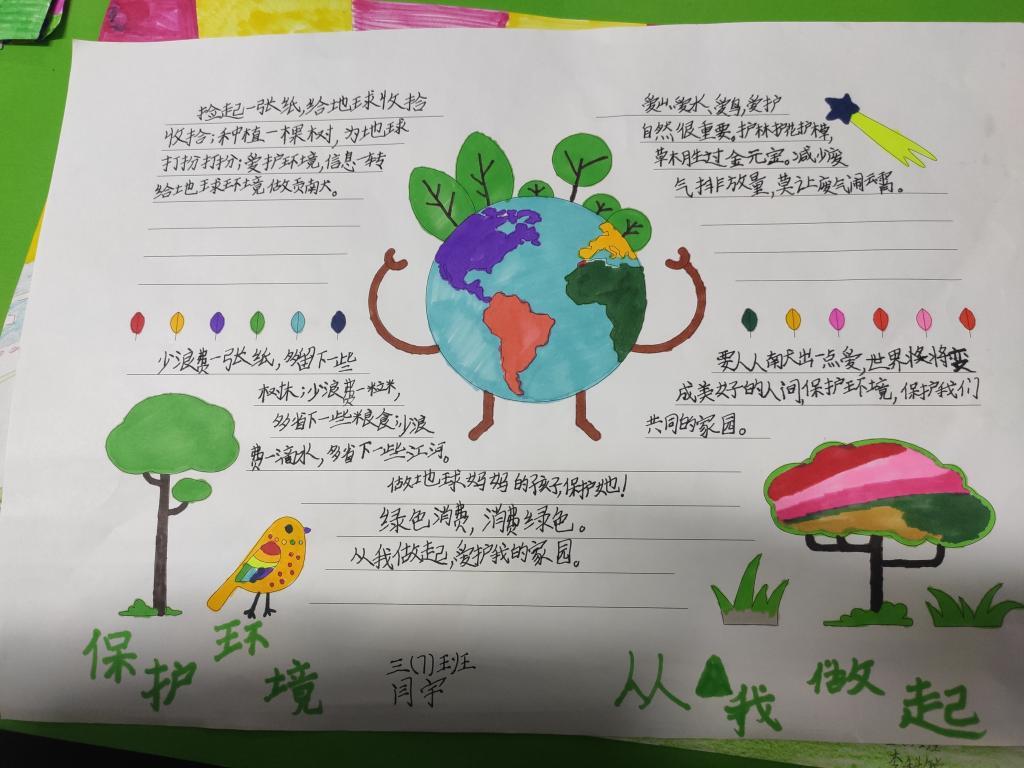 捡起一张纸,给地球收拾
收拾;种植一棵树,为地球
打扮打扮;爱护环境,信息一转
给地球环境做贡献。
爱山、爱水、爱鸟,爱护
自然很重要。护林护花护
草木胜过金元宝。减少废
气排放量,莫让废气闹云霄。
少浪费一张纸,多留下一些
树林;少浪费一粒米,
多省下一些粮食;少浪
费一滴水,多省下一些江河。
要人人献出一点爱,世界将将变
成美好的人间,保护环境,保护我们
共同的家园。
做地球妈妈的孩子,保护她!
绿色消费,消费绿色。
从我做起,爱护我的家园。
保护环境
三(7)班
闫宇
从我做起